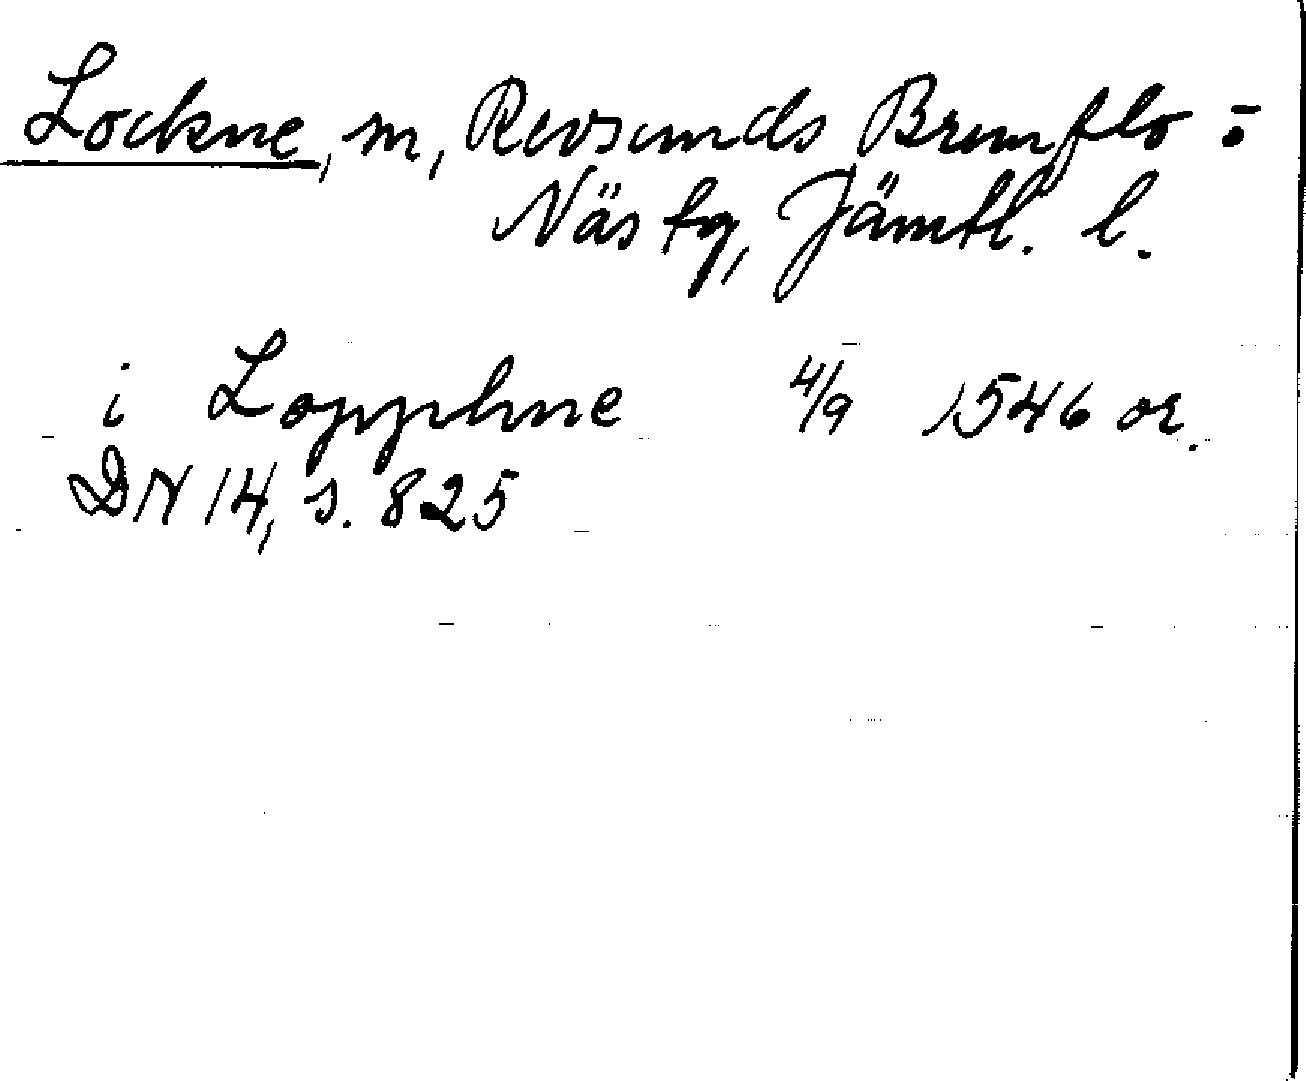 Lockne, sn, Revsunds Brunflo o
Näs tg, Jämtl. l.
i Lopphne 4/9 1546 or.
DN 14, s. 825